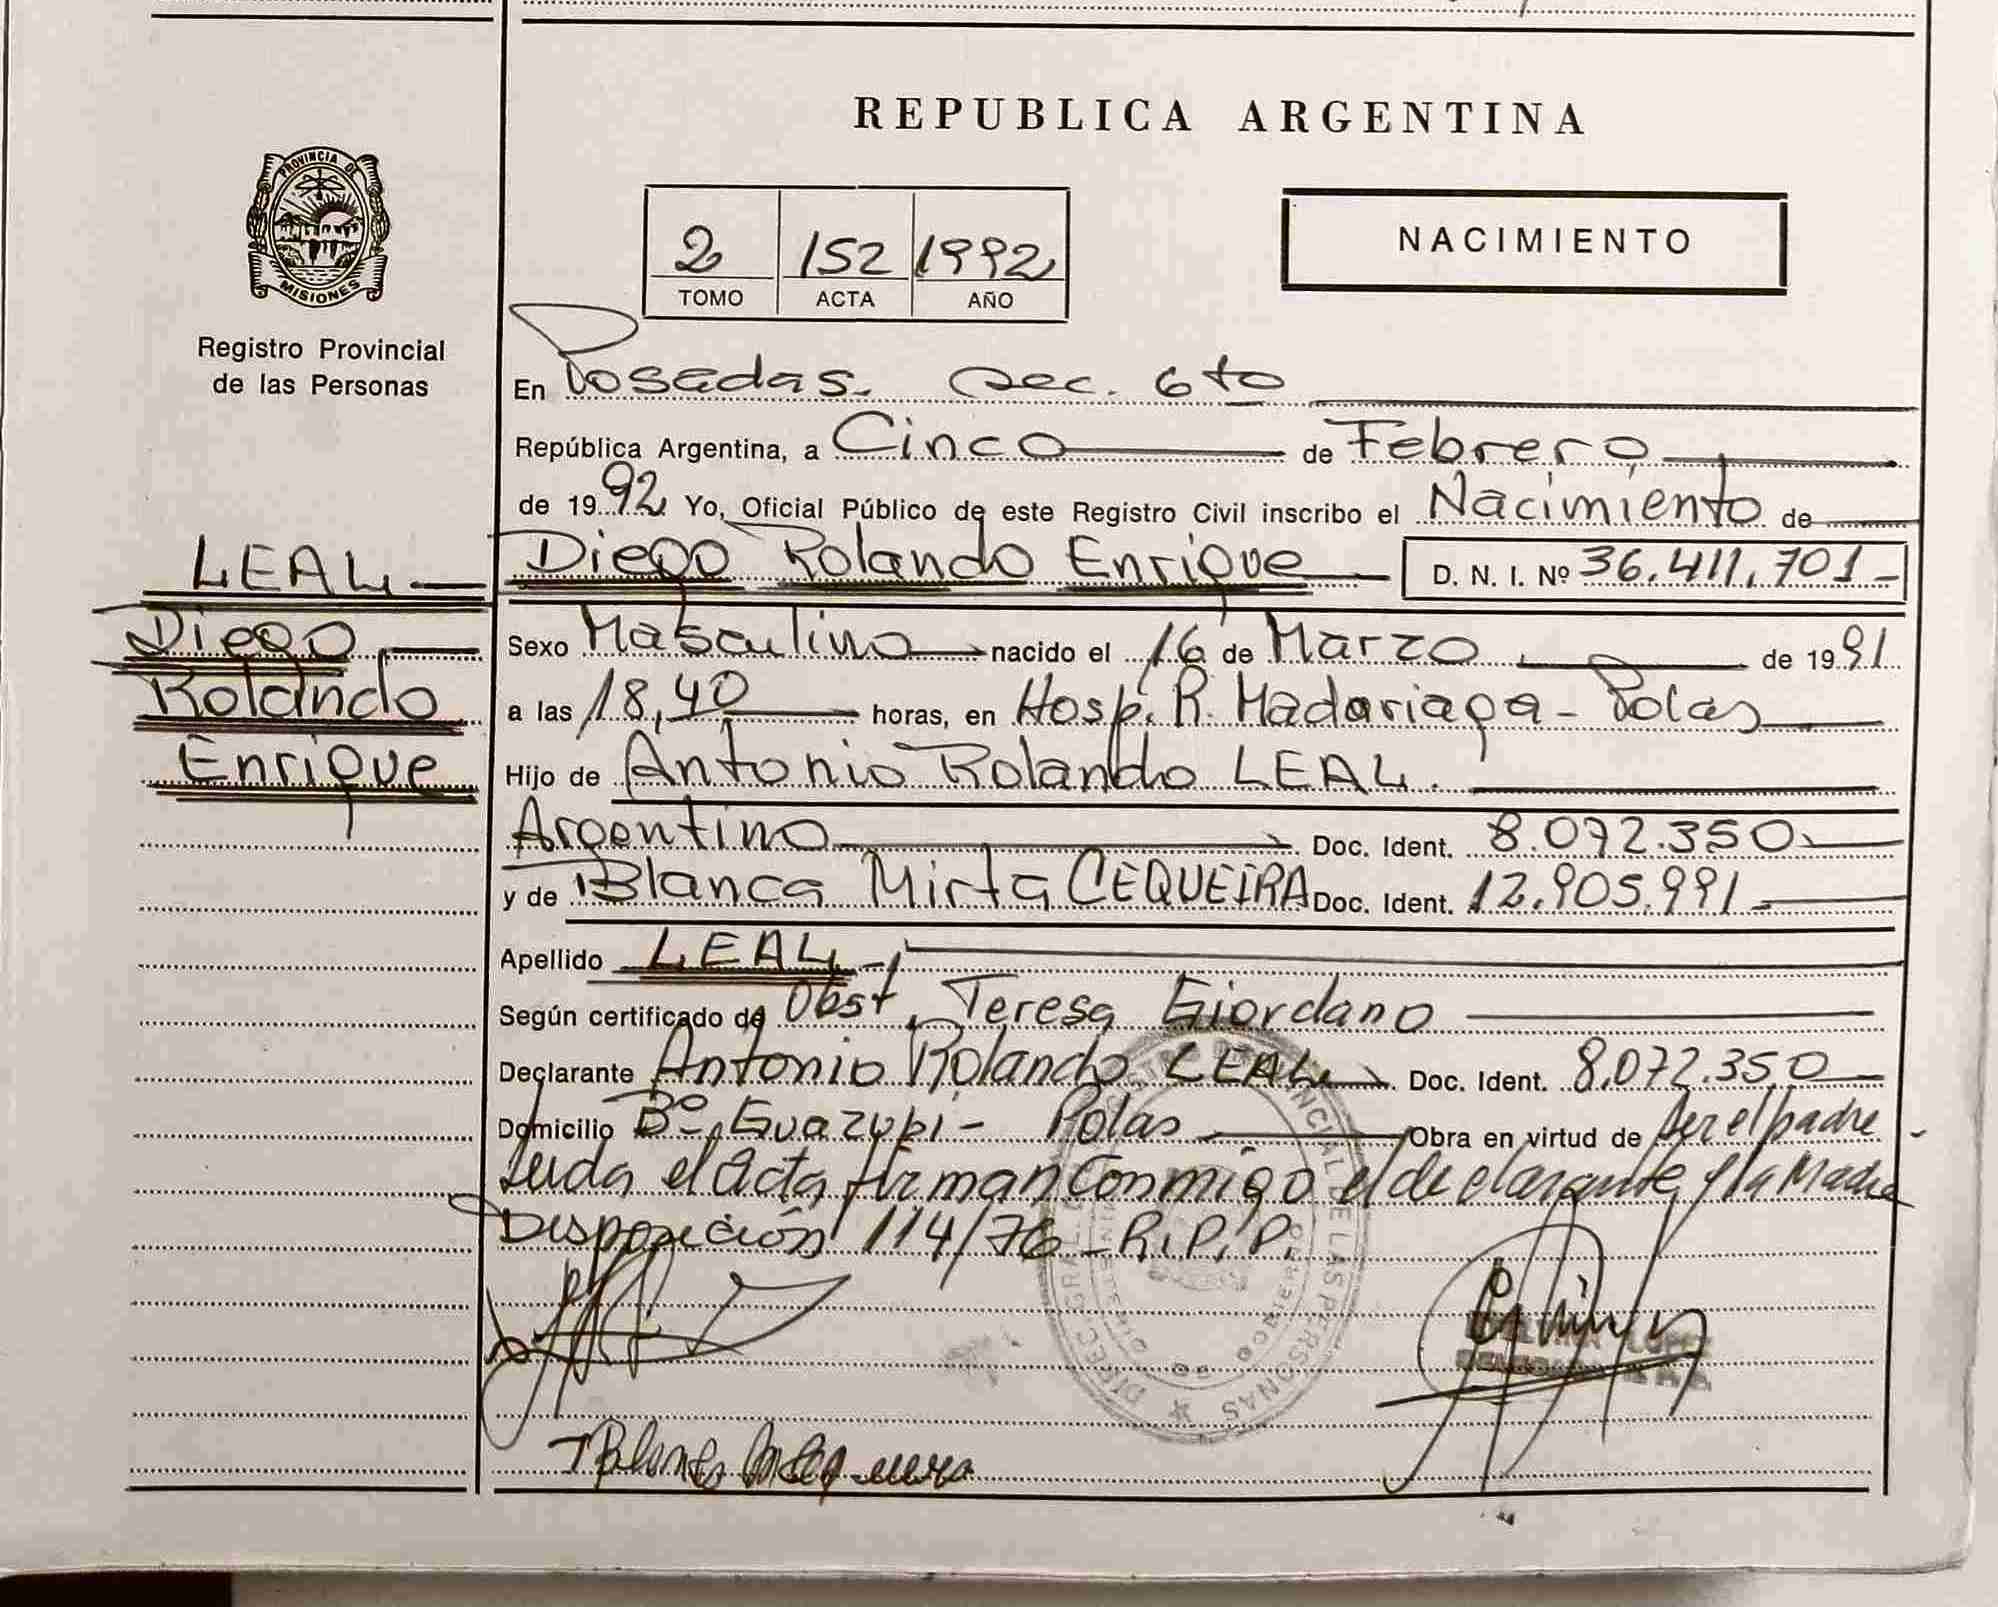 REPUBLICA ARGENTINA
PROVINCIA DE
MISIONES
Registro Provincial
de las Personas
2 152 1992
TOMO ACTA AÑO
NACIMIENTO
En Posadas. Sec. 6to
República Argentina, a Cinco de Febrero
de 1992 Yo, Oficial Público de este Registro Civil inscribo el Nacimiento de
LEAL
Diego
Rolando
Enrique
Diego Rolando Enrique D. N. I. Nº 36.411.701
Sexo Masculino nacido el 16 de Marzo de 1991
a las 18,40 horas, en Hosp. R. Madariaga - Pdas
Hijo de Antonio Rolando LEAL.
Argentino Doc. Ident. 8.072.350
y de Blanca Mirta CEQUEIRA Doc. Ident. 12.905.991
Apellido LEAL
Según certificado de Obst. Teresa Giordano
Declarante Antonio Rolando LEAL Doc. Ident. 8.072.350
Domicilio Bº Guazupi - Pdas Obra en virtud de ser el padre
Leida el acta firman conmigo el declarante y la Madre
Disposición 114/76 - R.P.P.
LOPEZ